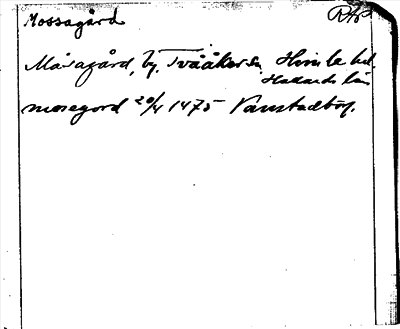 Mossagård RAP
Måsagård, by, Tvååkers sn Himle hd.
Hallands län
mosegord 20/4 1475 Vanstadtorp.